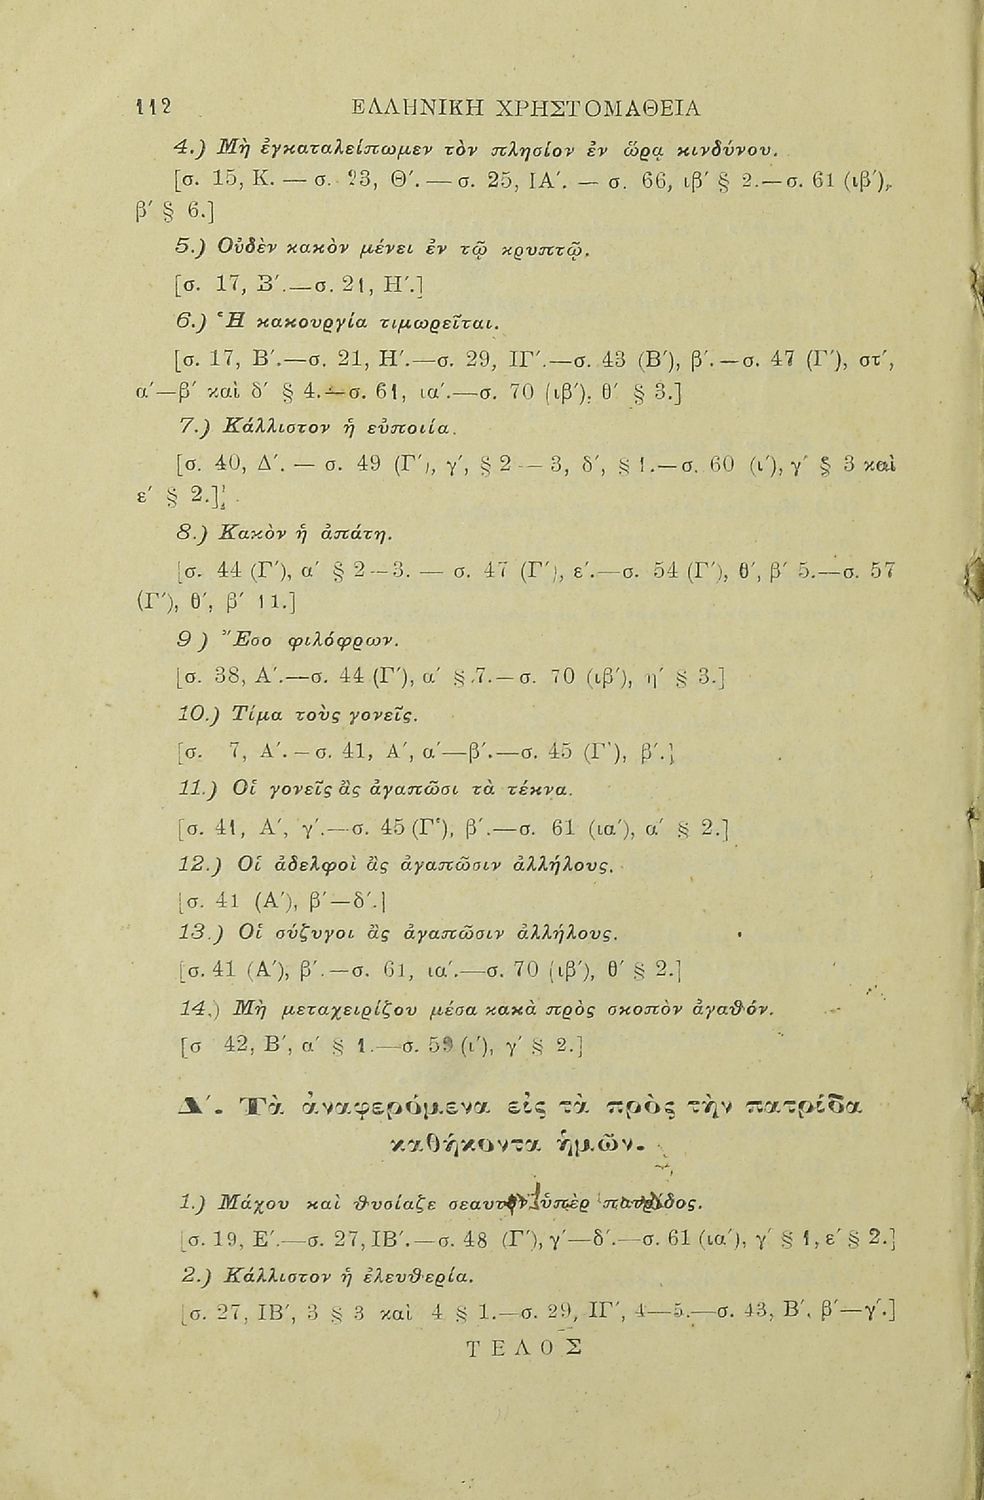 112 ΕΛΛΗΝΙΚΗ ΧΡΗΣΤΟΜΑΘΕΙΑ
4.) Μὴ ἐγκαταλείπωμεν τὸν πλησίον ἐν ὥρᾳ κινδύνου.
[σ. 15, Κ. — σ. 23, Θ′. — σ. 25, ΙΑ′. — σ. 66, ιβ′ § 2.—σ. 61 (ιβ′),
β′ § 6.]
5.) Οὐδὲν κακὸν μένει ἐν τῷ κρυπτῷ.
[σ. 17, Β′.—σ. 21, Η′.]
6.) Ἡ κακουργία τιμωρεῖται.
[σ. 17, Β′.—σ. 21, Η′.—σ. 29, ΙΓ′.—σ. 43 (Β′), β′.—σ. 47 (Γ′), στ′,
α′—β′ καὶ δ′ § 4.—σ. 61, ια′.—σ. 70 (ιβ′), θ′ § 3.]
7.) Κάλλιστον ἡ εὐποιία.
[σ. 40, Δ′. — σ. 49 (Γ′), γ′, § 2 — 3, δ′, § 1.—σ. 60 (ι′), γ′ § 3 καὶ
ε′ § 2.]
8.) Κακὸν ἡ ἀπάτη.
[σ. 44 (Γ′), α′ § 2—3. — σ. 47 (Γ′), ε′.—σ. 54 (Γ′), θ′, β′ 5.—σ. 57
(Γ′), θ′, β′ 11.]
9 ) Ἔσο φιλόφρων.
[σ. 38, Α′.—σ. 44 (Γ′), α′ § 7.—σ. 70 (ιβ′), η′ § 3.]
10.) Τίμα τοὺς γονεῖς.
[σ. 7, Α′.—σ. 41, Α′, α′—β′.—σ. 45 (Γ′), β′.]
11.) Οἱ γονεῖς ἂς ἀγαπῶσι τὰ τέκνα.
[σ. 41, Α′, γ′.—σ. 45 (Γ′), β′.—σ. 61 (ια′), α′ § 2.]
12.) Οἱ ἀδελφοὶ ἂς ἀγαπῶσιν ἀλλήλους.
[σ. 41 (Α′), β′—δ′.]
13.) Οἱ σύζυγοι ἂς ἀγαπῶσιν ἀλλήλους.
[σ. 41 (Α′), β′.—σ. 61, ια′.—σ. 70 (ιβ′), θ′ § 2.]
14.) Μὴ μεταχειρίζου μέσα κακὰ πρὸς σκοπὸν ἀγαθόν.
[σ 42, Β′, α′ § 1.—σ. 59 (ι′), γ′ § 2.]
Δ′. Τὰ ἀναφερόμενα εἰς τὰ πρὸς τὴν πατρίδα
καθήκοντα ἡμῶν.
1.) Μάχου καὶ θυσίαζε σεαυτὸν ὑπὲρ πατρίδος.
[σ. 19, Ε′.—σ. 27, ΙΒ′.—σ. 48 (Γ′), γ′—δ′.—σ. 61 (ια′), γ′ § 1, ε′ § 2.]
2.) Κάλλιστον ἡ ἐλευθερία.
[σ. 27, ΙΒ′, 3 § 3 καὶ 4 § 1.—σ. 29, ΙΓ′, 4—5.—σ. 43, Β′, β′—γ′.]
ΤΕΛΟΣ